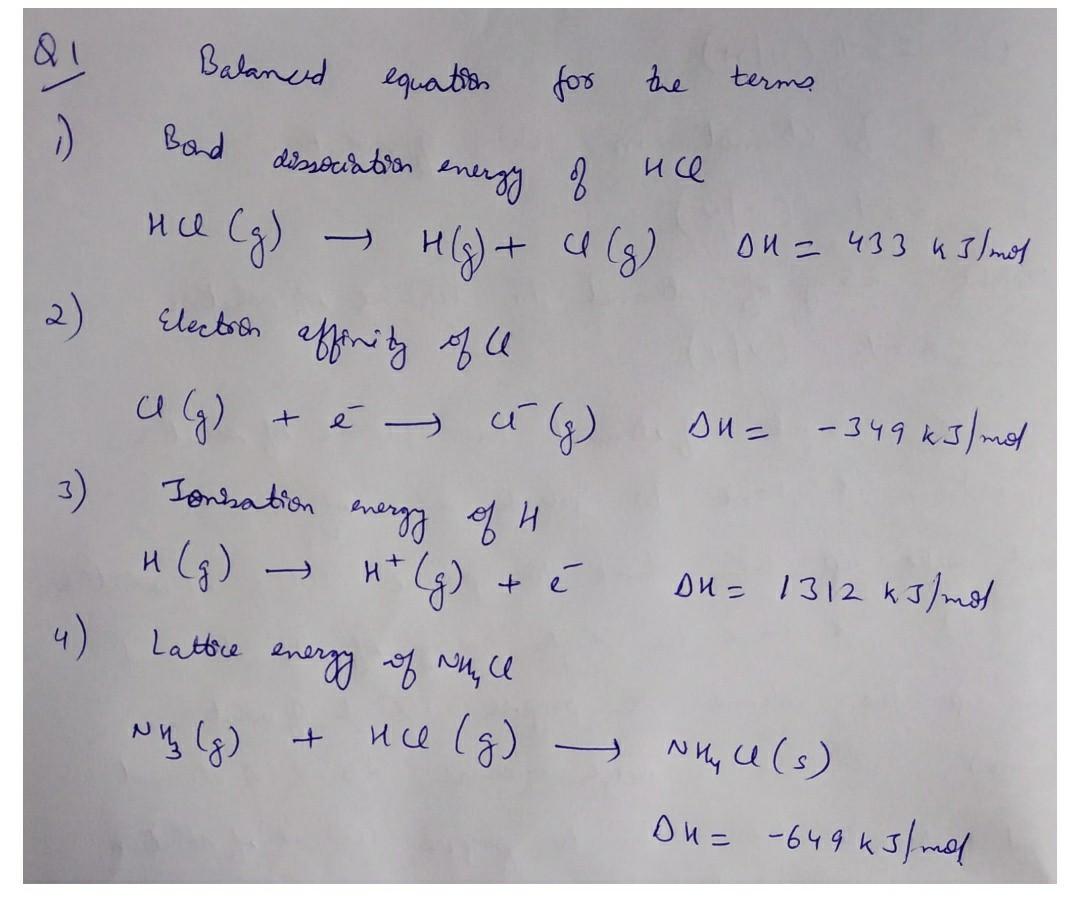 Q1 Balanced equation for the terms
1) Bond dissociation energy of HCl
HCl (g) → H(g) + Cl (g) ΔH = 433 kJ/mol
2) Electron affinity of Cl
Cl (g) + e⁻ → Cl⁻ (g) ΔH = -349 kJ/mol
3) Ionisation energy of H
H (g) → H⁺ (g) + e⁻ ΔH = 1312 kJ/mol
4) Lattice energy of NH₄Cl
NH₃ (g) + HCl (g) → NH₄Cl (s)
ΔH = -649 kJ/mol